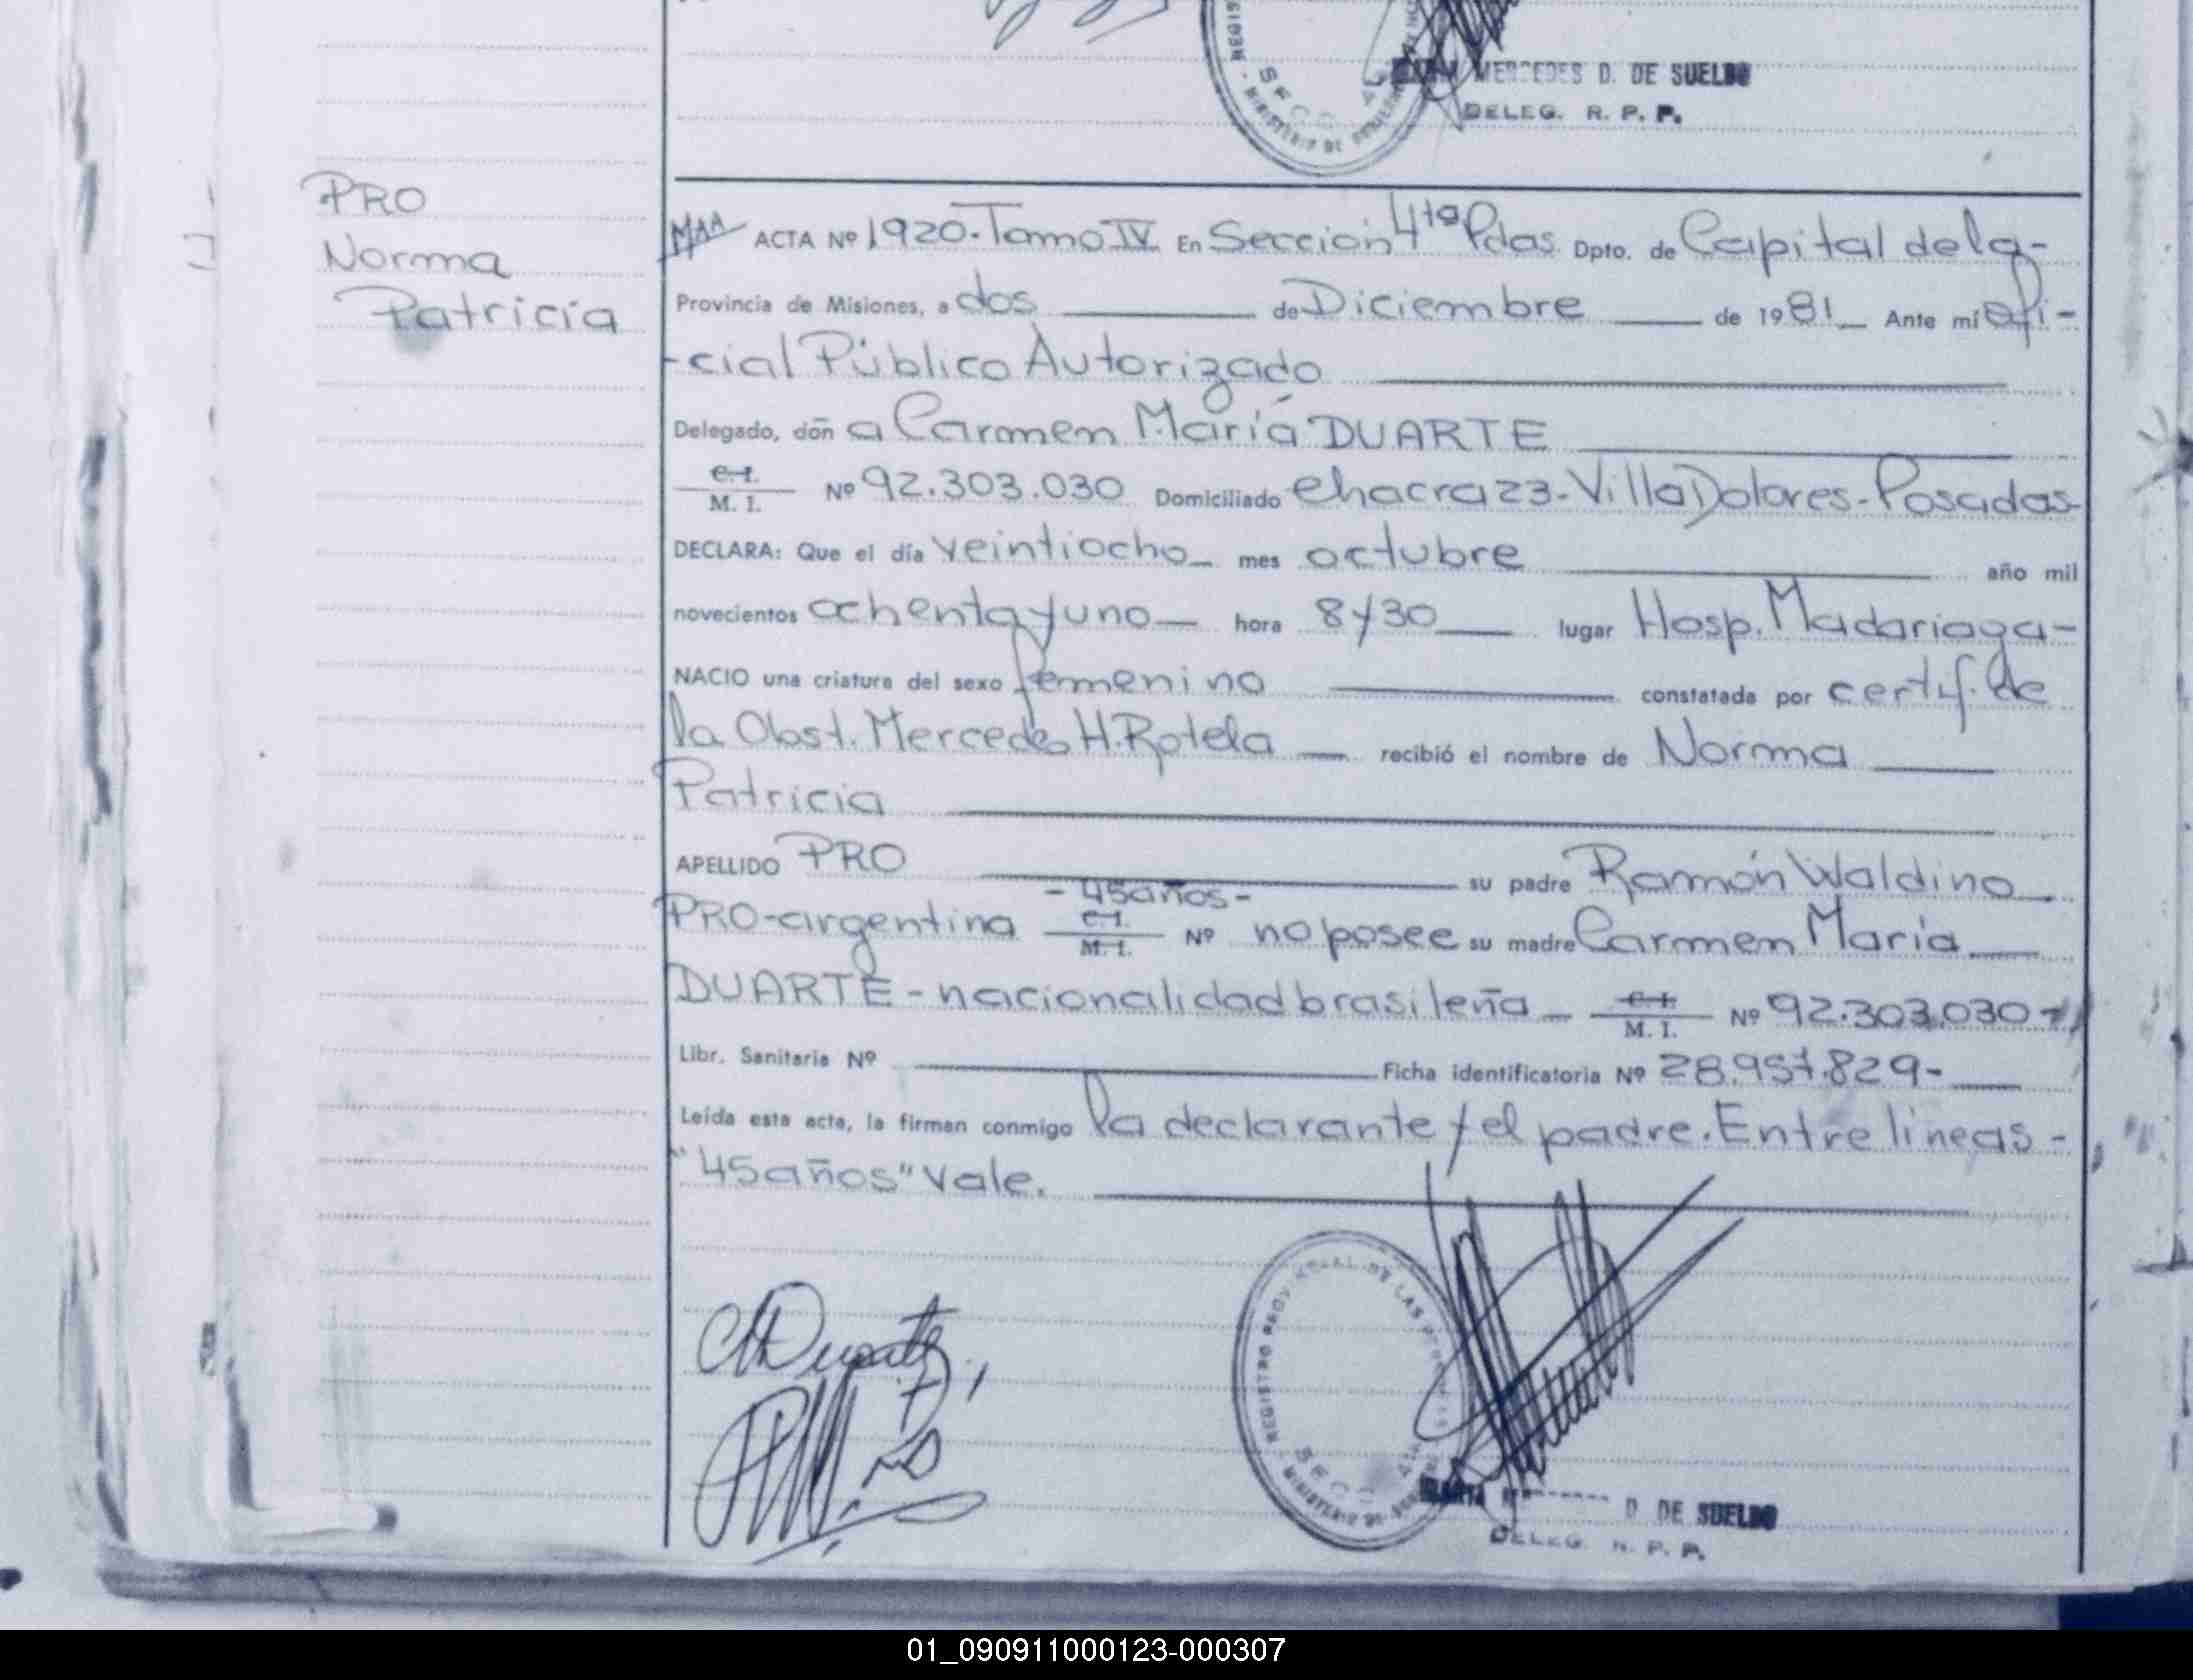 MERCEDES D. DE SUELDO
DELEG. R. P. P.
PRO
Norma
Patricia
ACTA Nº 1920. Tomo IV En Sección 4ta Pdas. Dpto. de Capital de la-
Provincia de Misiones, a dos de Diciembre de 1981 Ante mí Ofi-
-cial Público Autorizado
Delegado, don a Carmen María DUARTE
C.I.
M. I. Nº 92.303.030 Domiciliado Chacra 23-Villa Dolores-Posadas-
DECLARA: Que el día veintiocho mes octubre año mil
novecientos ochenta y uno hora 8 y 30 lugar Hosp. Madariaga-
NACIO una criatura del sexo femenino constatada por certif. de
la Obst. Mercedes H. Rotela recibió el nombre de Norma
Patricia
APELLIDO PRO su padre Ramón Waldino
-45 años-
PRO-argentina C.I. M. I. Nº no posee su madre Carmen María
DUARTE-nacionalidad brasileña C.I. M. I. Nº 92.303.030-
Libr. Sanitaria Nº Ficha identificatoria Nº 28.957.829-
Leída esta acta, la firman conmigo la declarante y el padre. Entre líneas-
"45 años" Vale.
CM Duarte
REGISTRO PROVINCIAL DE LAS
SECC 4ta
MINISTERIO DE
MARIA D. DE SUELDO
DELEG. R. P. P.
01_090911000123-000307